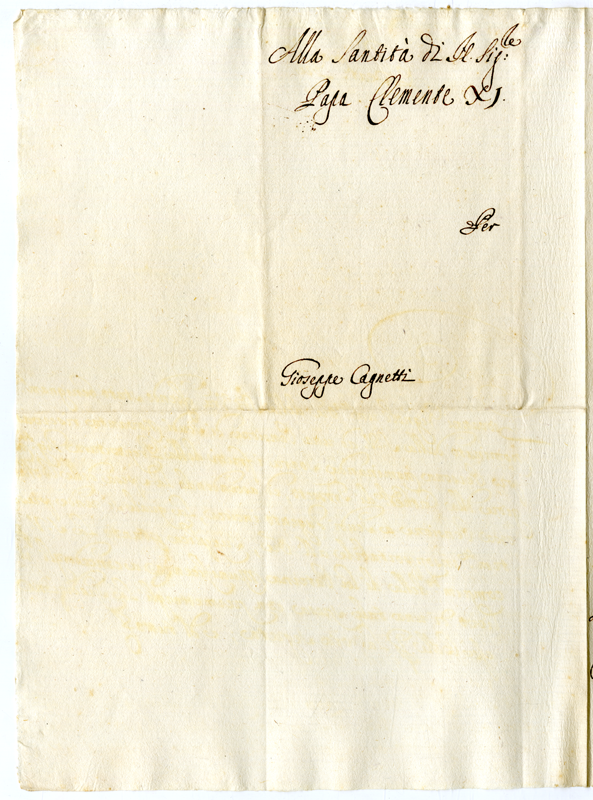 Alla Santità di N. Sig:re
Papa Clemente XJ.
Per
Gioseppe Cagnetti